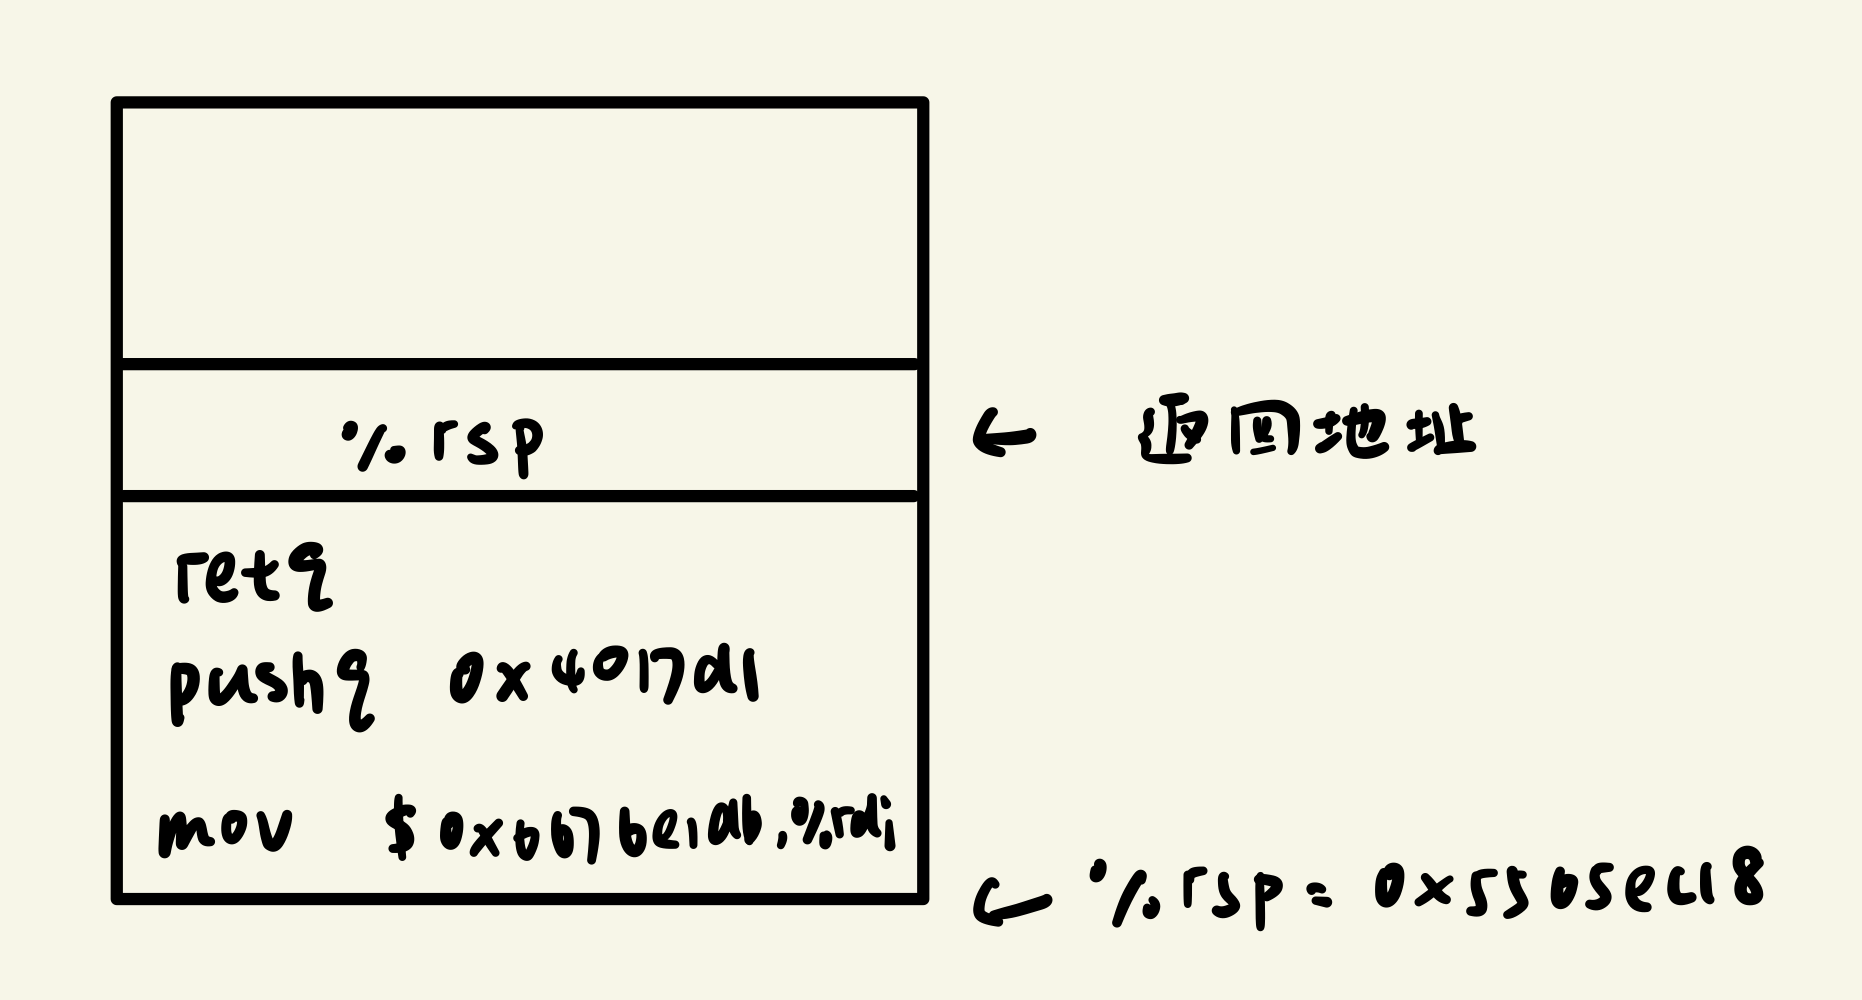 %rsp ← 返回地址
retq
pushq 0x4017d1
mov $0x667be1ab,%rdi
← %rsp = 0x5565ec18